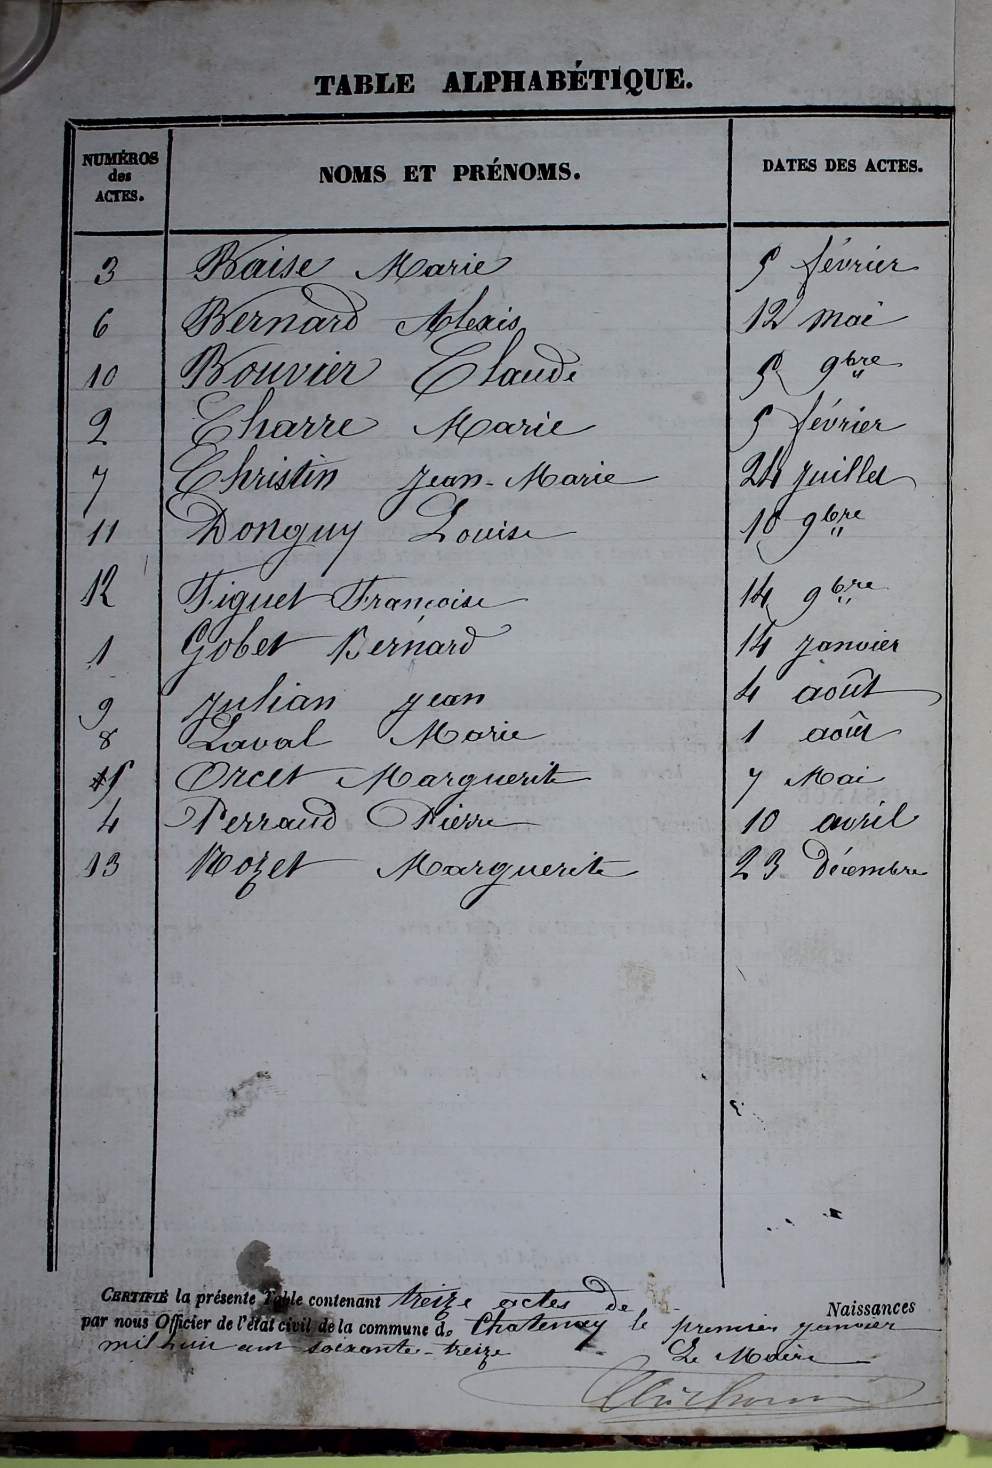 TABLE ALPHABÉTIQUE.
NUMÉROS des ACTES. NOMS ET PRÉNOMS. DATES DES ACTES.
3 Baise Marie 5 février
6 Bernard Alexis 12 mai
10 Bouvier Claude 5 9bre
2 Charre Marie 5 février
7 Christin Jean-Marie 24 juillet
11 Donguy Louise 10 9bre
12 Figuet Françoise 14 9bre
1 Gobet Bernard 14 janvier
9 Julian Jean 4 août
8 Laval Marie 1 août
5 Orcet Marguerite 7 Mai
4 Perraud Pierre 10 avril
13 Rozet Marguerite 23 Décembre
CERTIFIÉ la présente Table contenant treize actes de Naissances
par nous Officier de l'état civil de la commune de Chatenay le premier janvier
mil huit cent soixante-treize Le Maire